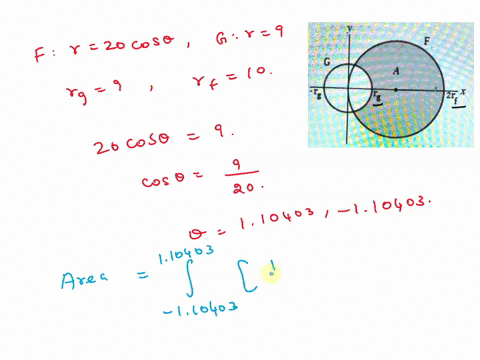 F: r = 20 cosθ , G: r = 9
r_g = 9 , r_f = 10.
20 cosθ = 9.
cosθ = 9/20.
θ = 1.10403 , -1.10403.
Area = ∫_{-1.10403}^{1.10403} [
y
F
G
A
-r_g
r_g
2r_f
x